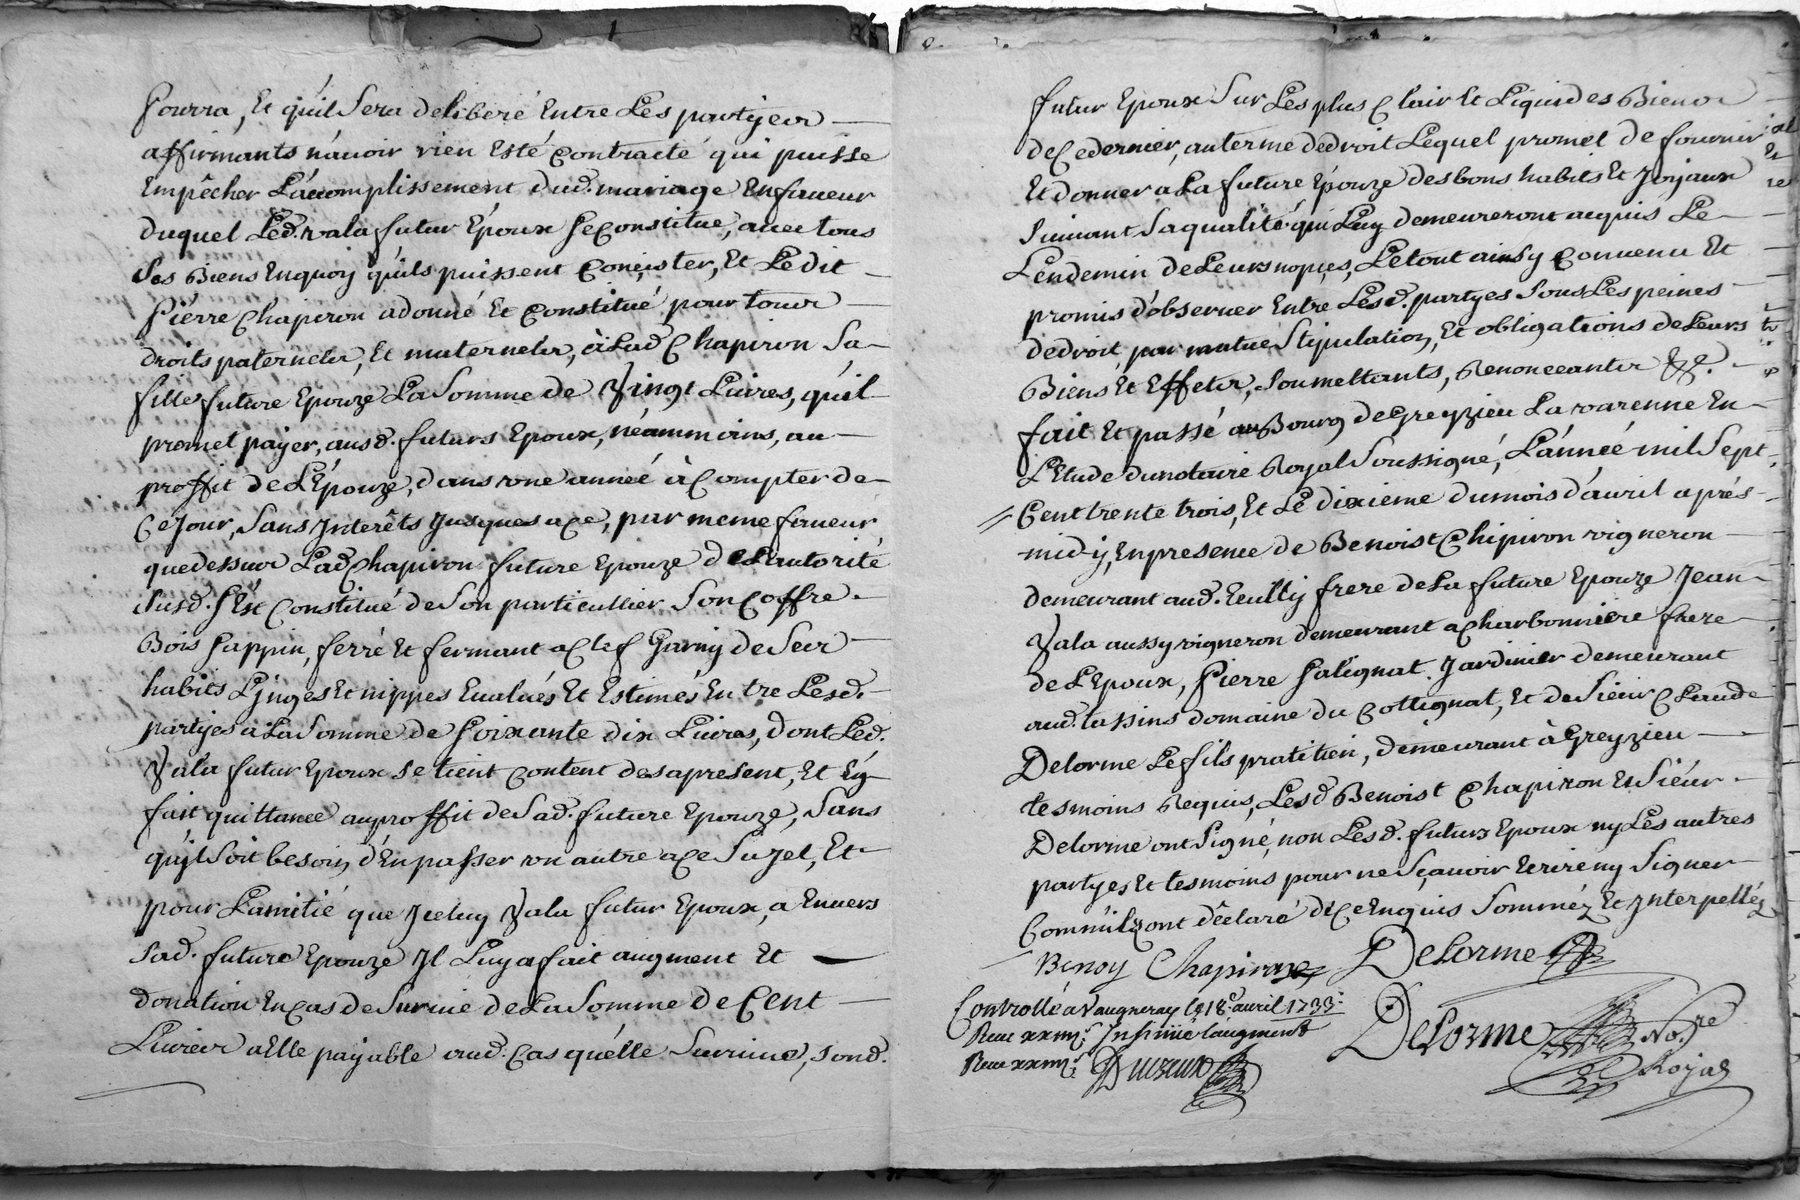 pourra, Et qu'il Sera deliberé Entre Les partyes
affirmants n'avoir rien Esté Contracté qui puisse
Empêcher L'acomplissement dud. mariage Enfaveur
duquel Led. Vala futur Epoux SeConstitue, avec tous
Ses Biens Enquoy quils puissent Concister, Et Ledit
Pierre Chapiron adonné Et Constitué pour tous
droits paternels, Et maternels, à Lad Chapiron Sa
fille future Epouze La Somme de Vingt Livres, qu'il
promet payer, ausd. futurs Epoux, néammoins, au
proffit de L'Epouze, dans vne année à Compter de
Ce Jour, Sans Interêts Jusques a Ce, par meme faveur
que dessus Lad Chapiron future Epouze de Lautorité
Susd. S'Est Constitué de Son particullier Son Coffre
Bois Sappin, ferré Et fermant a Clef Garny de Ses
habits Linges Et nippes Evalués Et Estimés Entre Lesd.
partyes a La Somme de Soixante dix Livres, dont Led.
Vala futur Epoux se tient Content des apresent, Et En
fait quittance auproffit de Sad. future Epouze, Sans
qu'il Soit besoin d'En passer vn autre a Ce Sujet, Et
pour Lamitié que Iceluy Vala futur Epoux, a Envers
Sad. future Epouze Il Luy a fait augment Et
donation En Cas de Survie de La Somme de Cent
Livres a Elle payable aud. Cas qu'elle Survive, Sond.
futur Epoux Sur Les plus Clair Et Liquides Biens
de Ce dernier, auterme dedroit Lequel promet de fournir
Et donner a La future Epouze des bons habits Et Joyaux
Suivant Saqualité qui Luy demeureront acquis Le
Lendemin de Leurs nopces, Le tout ainsy Convenu Et
promis d'observer Entre Lesd. partyes Sous Les peines
dedroit par mutue Stipulation, Et obligations de Leurs
Biens Et Effets, Soumettants, Renonceants &&.
fait Et passé au Bourg de Greyzieu La varenne En
L'Etude du notaire Royal Soussigné, L'année mil Sept
Cent trente trois, Et Le dixieme du mois d'avril aprés
midy, Enpresence de Benoist Chipiron vigneron
demeurant aud. Eeully frere de La future Epouze Jean
Vala aussy vigneron demeurant a Charbonniere frere
de L'Epoux, Pierre Salignat Jardinier demeurant
aud. tassins domaine du Cottignat, Et de Sieur Claude
Delorme Le fils pratitien, demeurant à Greyzieu
tesmoins Requis, Lesd Benoist Chapiron Et Sieur
Delorme ont Signé, non Lesd. futurs Epoux ny Les autres
partyes Et tesmoins pour ne Sçavoir Ecrire ny Signer
Comm'ilz ont déclaré de Ce Enquis Sommez Et Interpellez
Benoy Chapiron Delorme
Controllé a Vaugneray le 18e. avril 1733
Receu Insinüé laugment
Receu
Delorme No.re
Royal